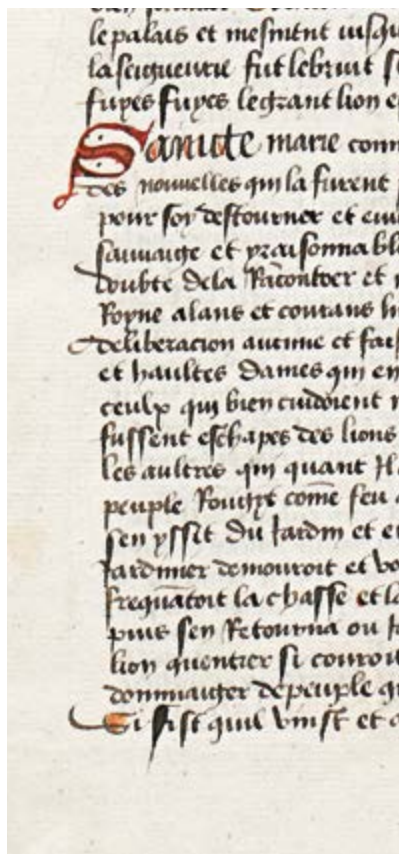 le palais et mesment
la seigneurie fut le bruit
fuyes fuyes le grant lion
Saincte marie comm
des nouvelles qui la furent
pour soy destourner et
sauvaige et yraisonnabl
doubte de la Racontrer et
Royne alans et courans
deliberacion aucune et fais
et haultes dames qui en
ceulx qui bien cuidoient
fussent eschapes des lions
les aultres qui quant Jl
peuple comme feu
sen yssit du Jardin et
Jardinier demouroit et
frequatoit la chasse et la
puis sen Retourna ou
lion quentier si couroit
dommaiger de peuple
Si fist quil vinst et